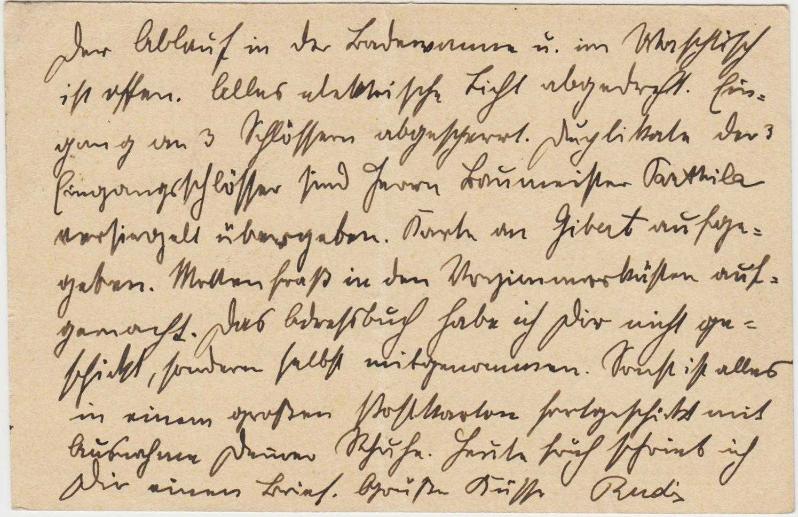 Der Ablauf in der Badewanne u. im Waschtisch
ist offen. Alles elektrische Licht abgedreht. Ein-
gang an 3 Schlössern abgesperrt. Duplikate der 3
Eingangsschlösser sind Herrn Baumeister
versiegelt übergeben. Karte an Gibert aufge-
geben. Mottenfraß in den Vorzimmerkästen auf-
gemacht. Das Adressbuch habe ich Dir nicht ge-
schickt, sondern selbst mitgenommen. Sonst ist alles
in einem großen Postkarton fortgeschickt mit
Ausnahme Deiner Schuhe. Heute früh schrieb ich
Dir einen Brief. Küsse Rudi